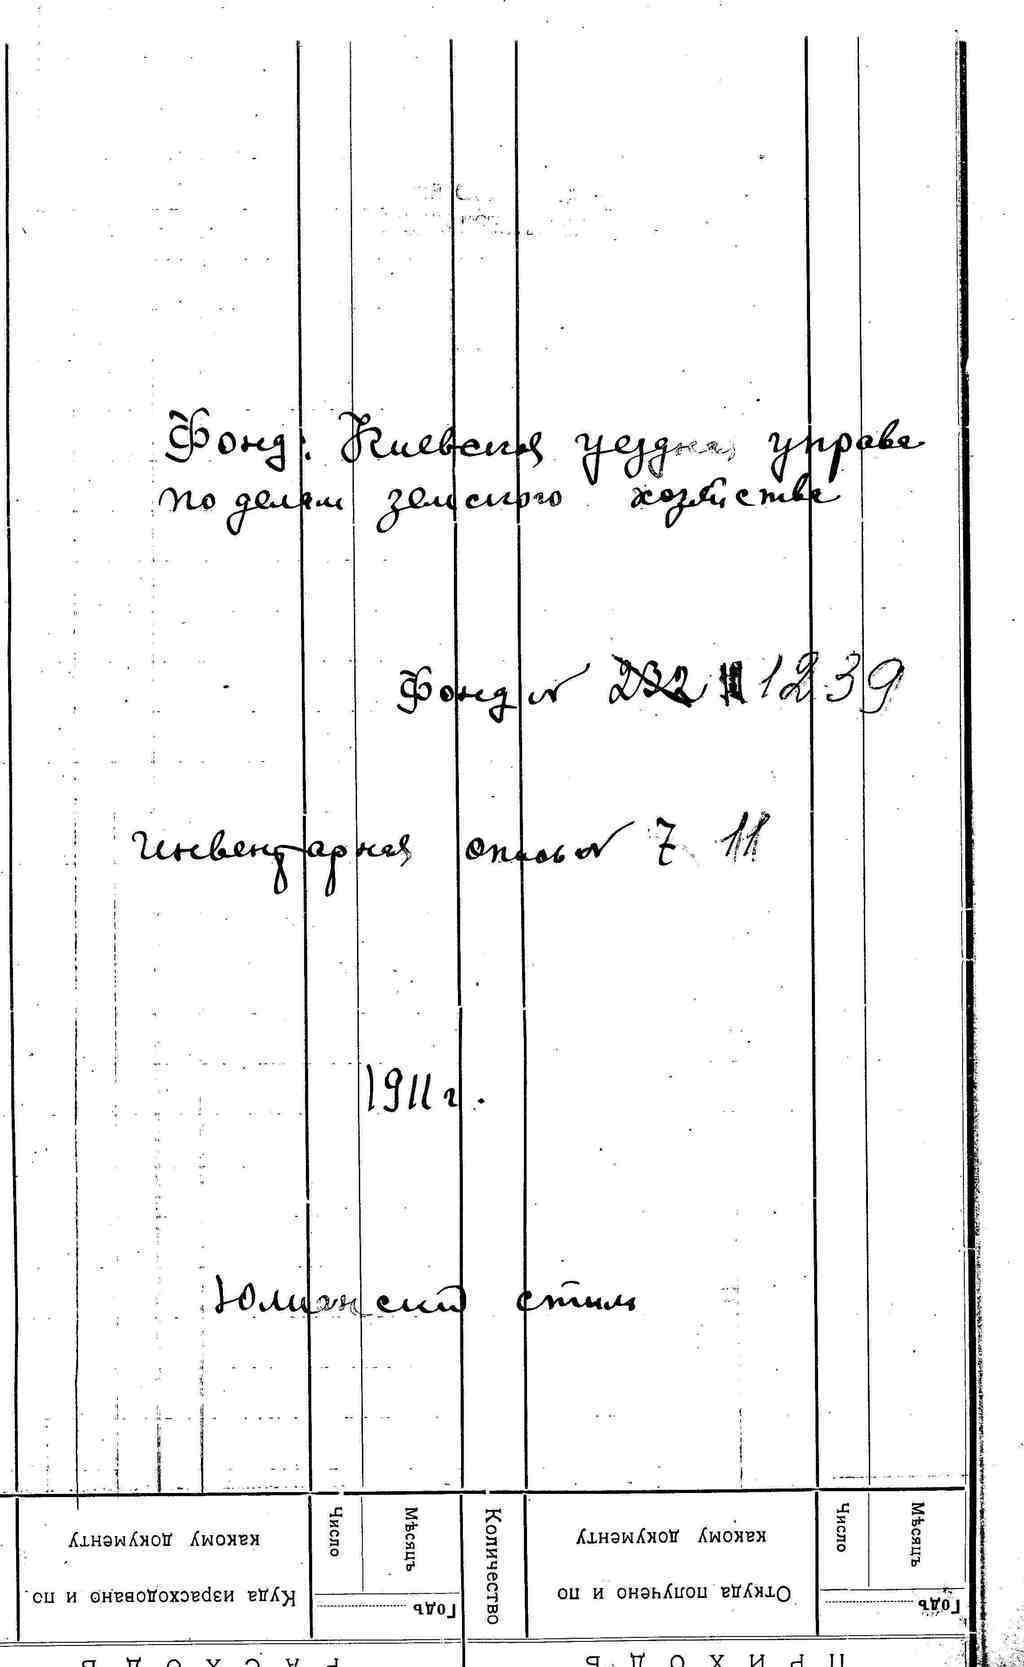 Фонд: Киевская уездная управа
по делам земского хозяйства
Фонд № 232 1239
Инвентарная опись № 7 11
1911 г.
Юлианский стиль
ПРИХОДЪ
РАСХОДЪ
Годъ
Мѣсяцъ
Число
Откуда получено и по
какому документу
Количество
Годъ
Мѣсяцъ
Число
Куда израсходовано и по
какому документу